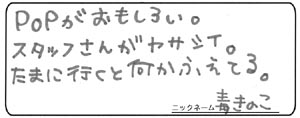 POPがおもしろい。
スタッフさんがヤサシイ。
たまに行くと何かふえてる。
ニックネーム 青きのこ